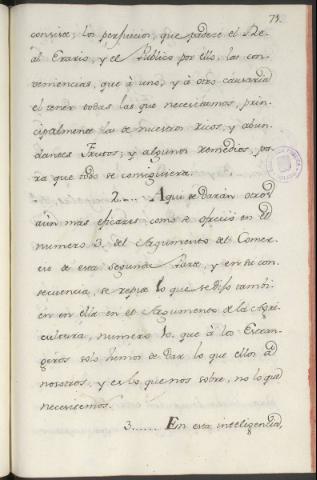 73.
consiste; los perjuicios, que padece el Re-
al Erario, y el Publico por ello, las con-
veniencias, que à uno, y à otro causaria
el tener todas las que necesitamos, prin-
cipalmente las de nuestros ricos, y abun-
dantes Frutos; y algunos remedios, pa-
ra que todo se consiguiera.
2.... Aqui se daràn otros
aùn mas eficaces como se ofreciò en el
numero 3. del Argumento del Comer-
cio de esta segunda Parte, y en su con-
secuencia, se repite lo que se dijo tambi-
en en ella en el Argumento de la Agri-
cultura, numero 10. que à los Estran-
geros solo hemos de dar lo que ellos à
nosotros, y es lo que nos sobre, no lo que
necesitemos.
3...... En esta inteligencia,